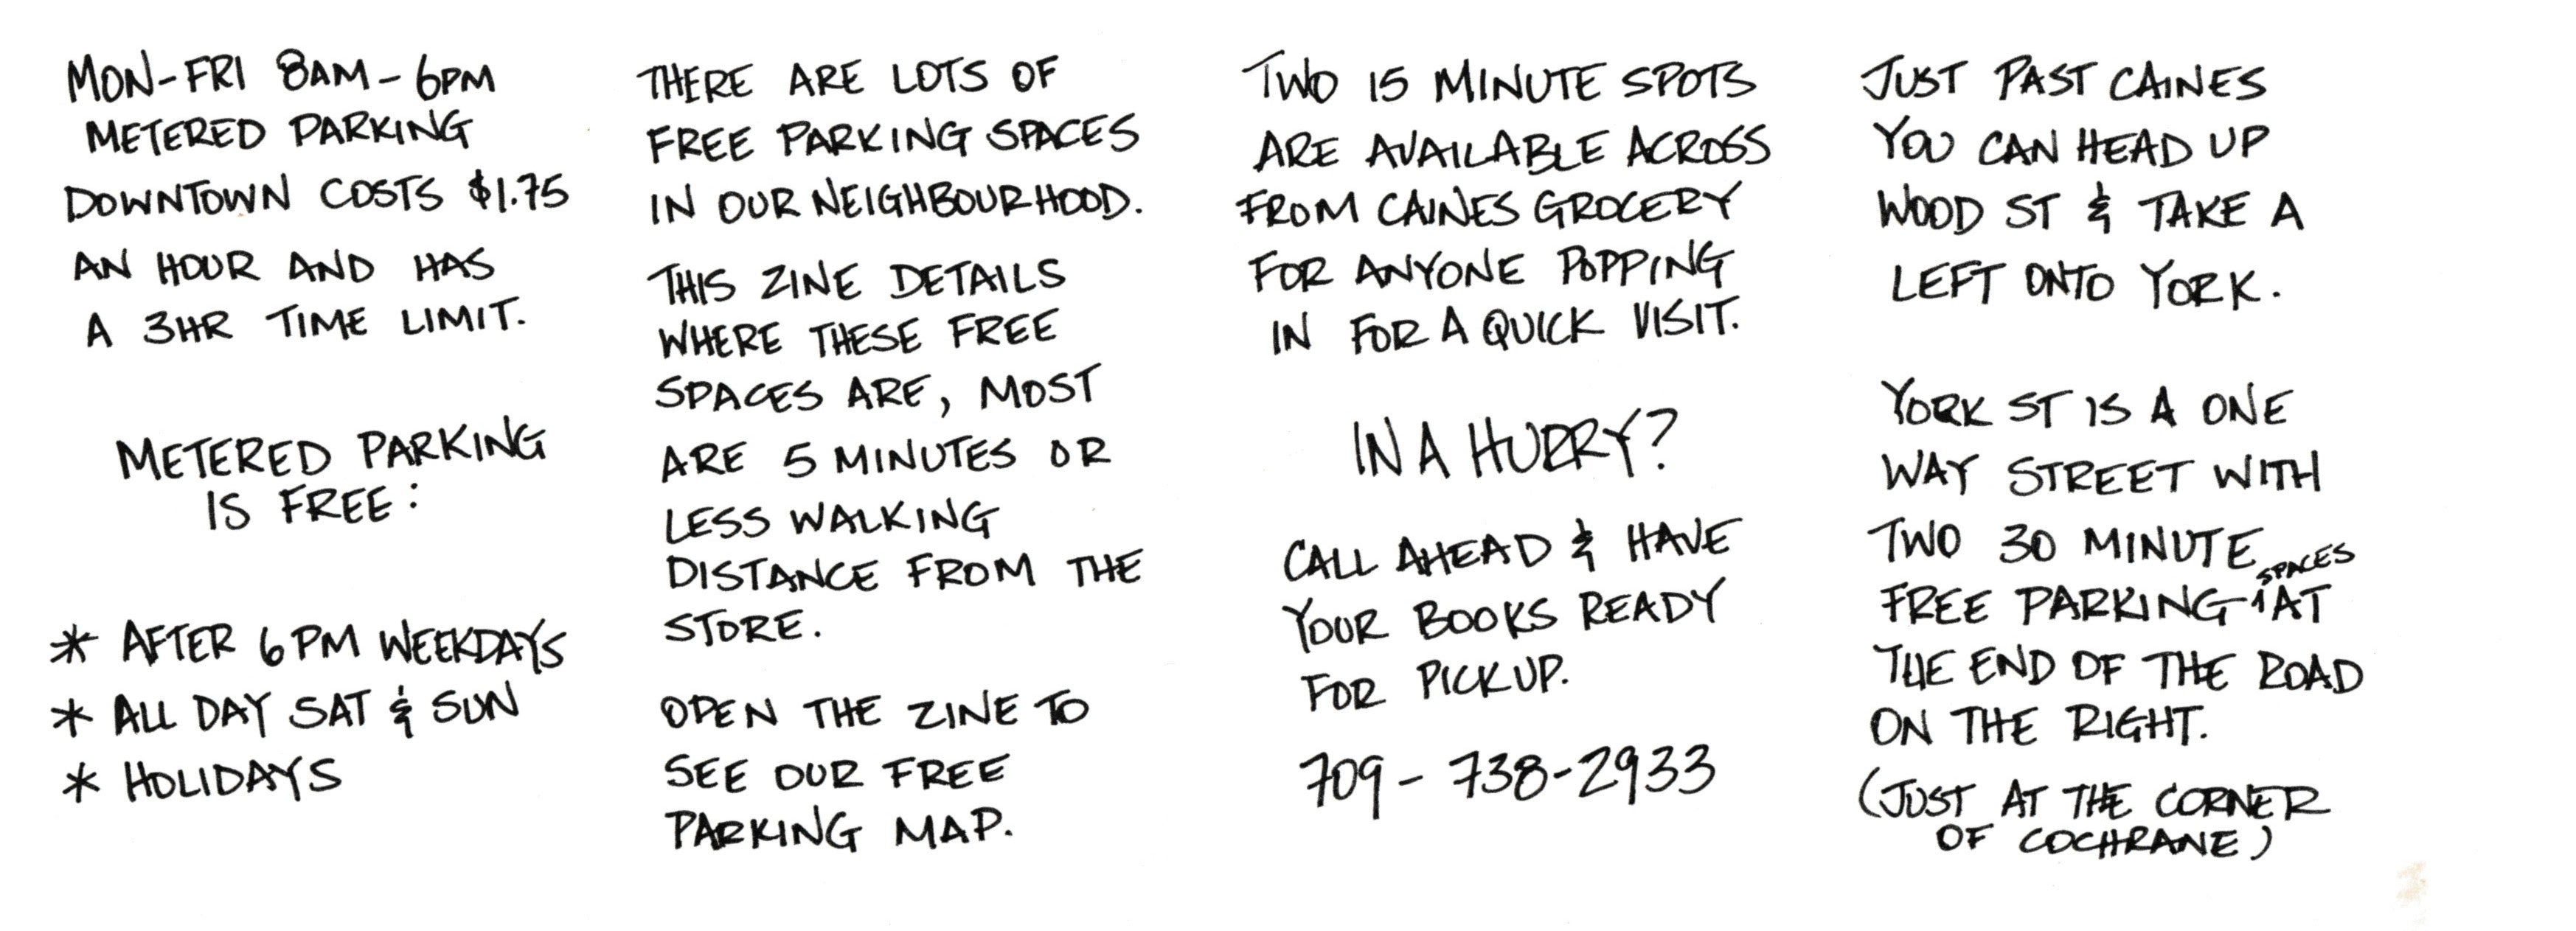 MON-FRI 8AM-6PM
METERED PARKING
DOWNTOWN COSTS $1.75
AN HOUR AND HAS
A 3HR TIME LIMIT.
METERED PARKING
IS FREE:
* AFTER 6PM WEEKDAYS
* ALL DAY SAT & SUN
* HOLIDAYS
THERE ARE LOTS OF
FREE PARKING SPACES
IN OUR NEIGHBOURHOOD.
THIS ZINE DETAILS
WHERE THESE FREE
SPACES ARE, MOST
ARE 5 MINUTES OR
LESS WALKING
DISTANCE FROM THE
STORE.
OPEN THE ZINE TO
SEE OUR FREE
PARKING MAP.
TWO 15 MINUTE SPOTS
ARE AVAILABLE ACROSS
FROM CAINES GROCERY
FOR ANYONE POPPING
IN FOR A QUICK VISIT.
IN A HURRY?
CALL AHEAD & HAVE
YOUR BOOKS READY
FOR PICKUP.
709-738-2933
JUST PAST CAINES
YOU CAN HEAD UP
WOOD ST & TAKE A
LEFT ONTO YORK.
YORK ST IS A ONE
WAY STREET WITH
TWO 30 MINUTE
FREE PARKING SPACES AT
THE END OF THE ROAD
ON THE RIGHT.
(JUST AT THE CORNER
OF COCHRANE)